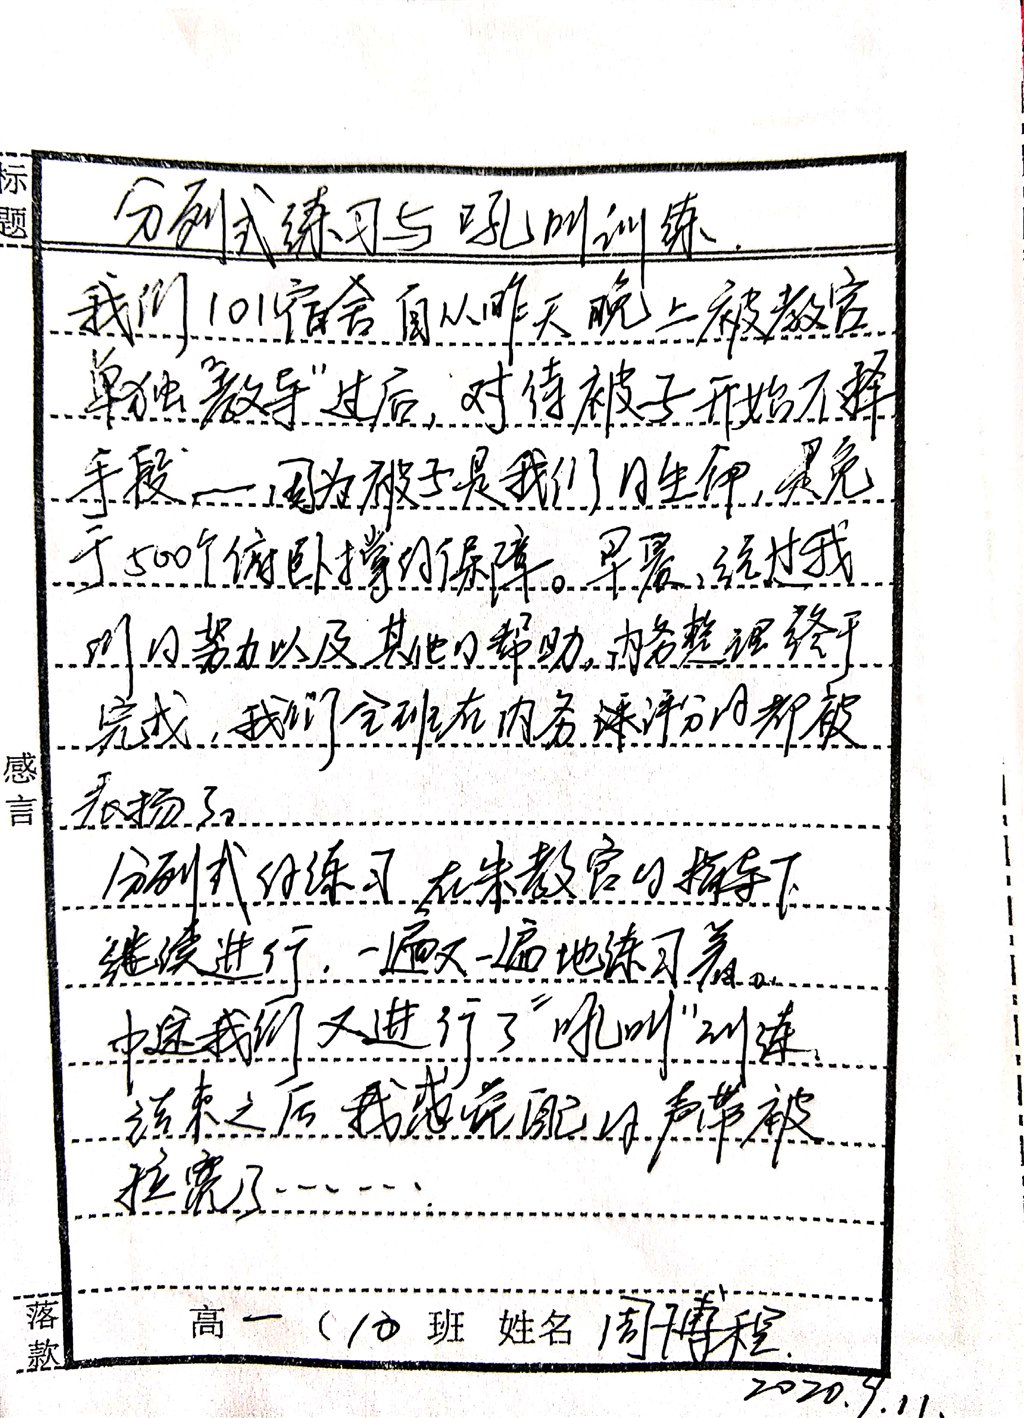 标题
分列式练习与吼叫训练.
我们101宿舍自从昨天晚上被教官
单独"教导"过后,对待被子开始不择
手段,——因为被子是我们的生命,是免
于500个俯卧撑的保障。早晨,经过我
们的努力以及其他的帮助,内务整理终于
完成,我们全班在内务评分时都被
表扬了。
感言
分列式的练习在朱教官的指导下
继续进行.一遍又一遍地练习着。
中途我们又进行了"吼叫"训练,
结束之后我感觉的声带被
拉宽了······.
落款
高一( )班 姓名 周博程.
2020.9.11.